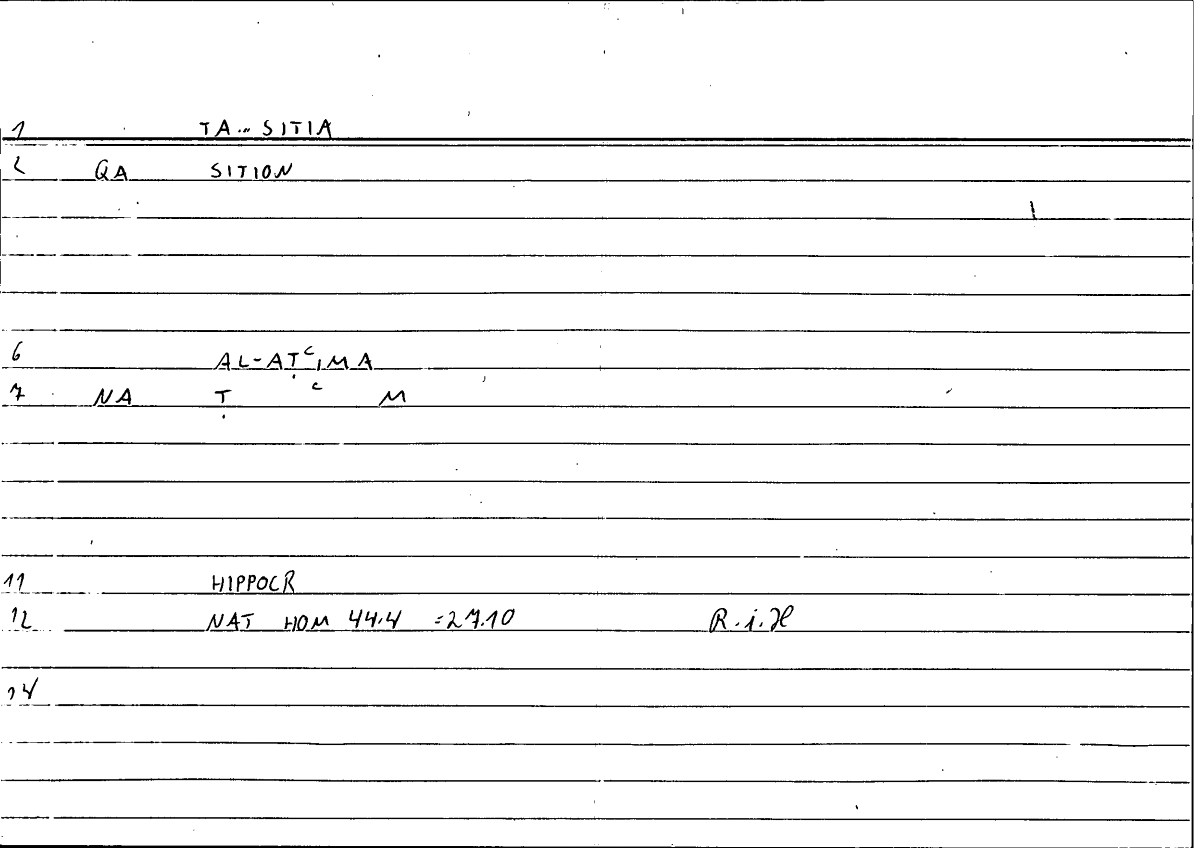 1 TA... SITIA
2 QA SITION
6 AL-AṬʿIMA
7 NA Ṭ ʿ M
11 HIPPOCR
12 NAT HOM 44.4 =27.10 R.i.H
14